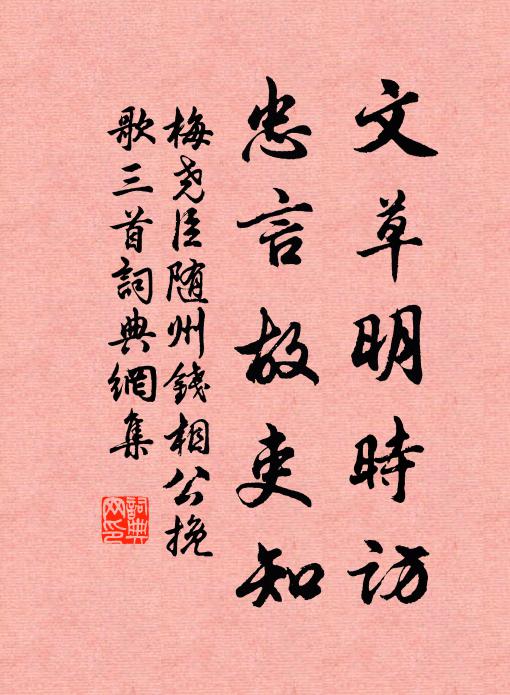 文草明時訪
忠言故吏知
梅尧臣随州錢相公挽
歌三首詞典網集
詞典
网印